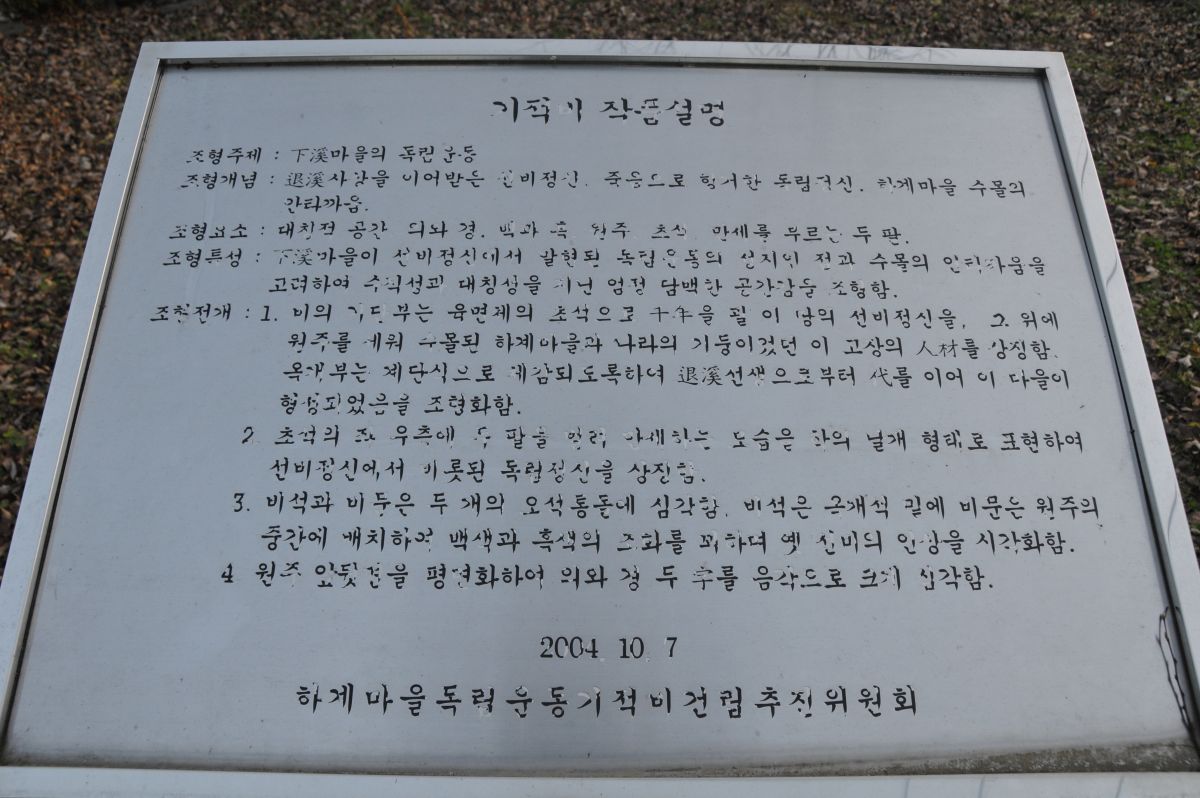 기적비 작품설명
조형주제 : 下溪마을의 독립운동
조형개념 : 退溪사상을 이어받은 선비정신. 죽음으로 항거한 독립정신. 하계마을 수몰의
안타까움.
조형요소 : 대칭적 공간 의와 경. 백과 흑 원주. 초석. 만세를 부르는 두 팔.
조형특성 : 下溪마을이 선비정신에서 발현된 독립운동의 성지인 점과 수몰의 안타까움을
고려하여 수직성과 대칭성을 지닌 엄정 담백한 공간감을 조형함.
조형전개 : 1. 비의 기단부는 육면체의 초석으로 千年을 필 이 땅의 선비정신을, 그 위에
원주를 세워 수몰된 하계마을과 나라의 기둥이었던 이 고장의 人材를 상징함.
옥개부는 계단식으로 체감되도록하여 退溪선생으로부터 代를 이어 이 마을이
형성되었음을 조형화함.
2. 초석의 좌 우측에 두 팔을 벌려 만세하는 모습을 한의 날개 형태로 표현하여
선비정신에서 비롯된 독립정신을 상징함.
3. 비석과 비둥은 두 개의 오석통돌에 심각함. 비석은 공개석 밑에 비문는 원주의
중간에 배치하여 백색과 흑색의 조화를 꾀하며 옛 선비의 인상을 시각화함.
4 원주 앞뒷면을 평면화하여 의와 경 두 수를 음각으로 크게 심각함.
2004. 10. 7
하계마을독립운동기적비건립추진위원회